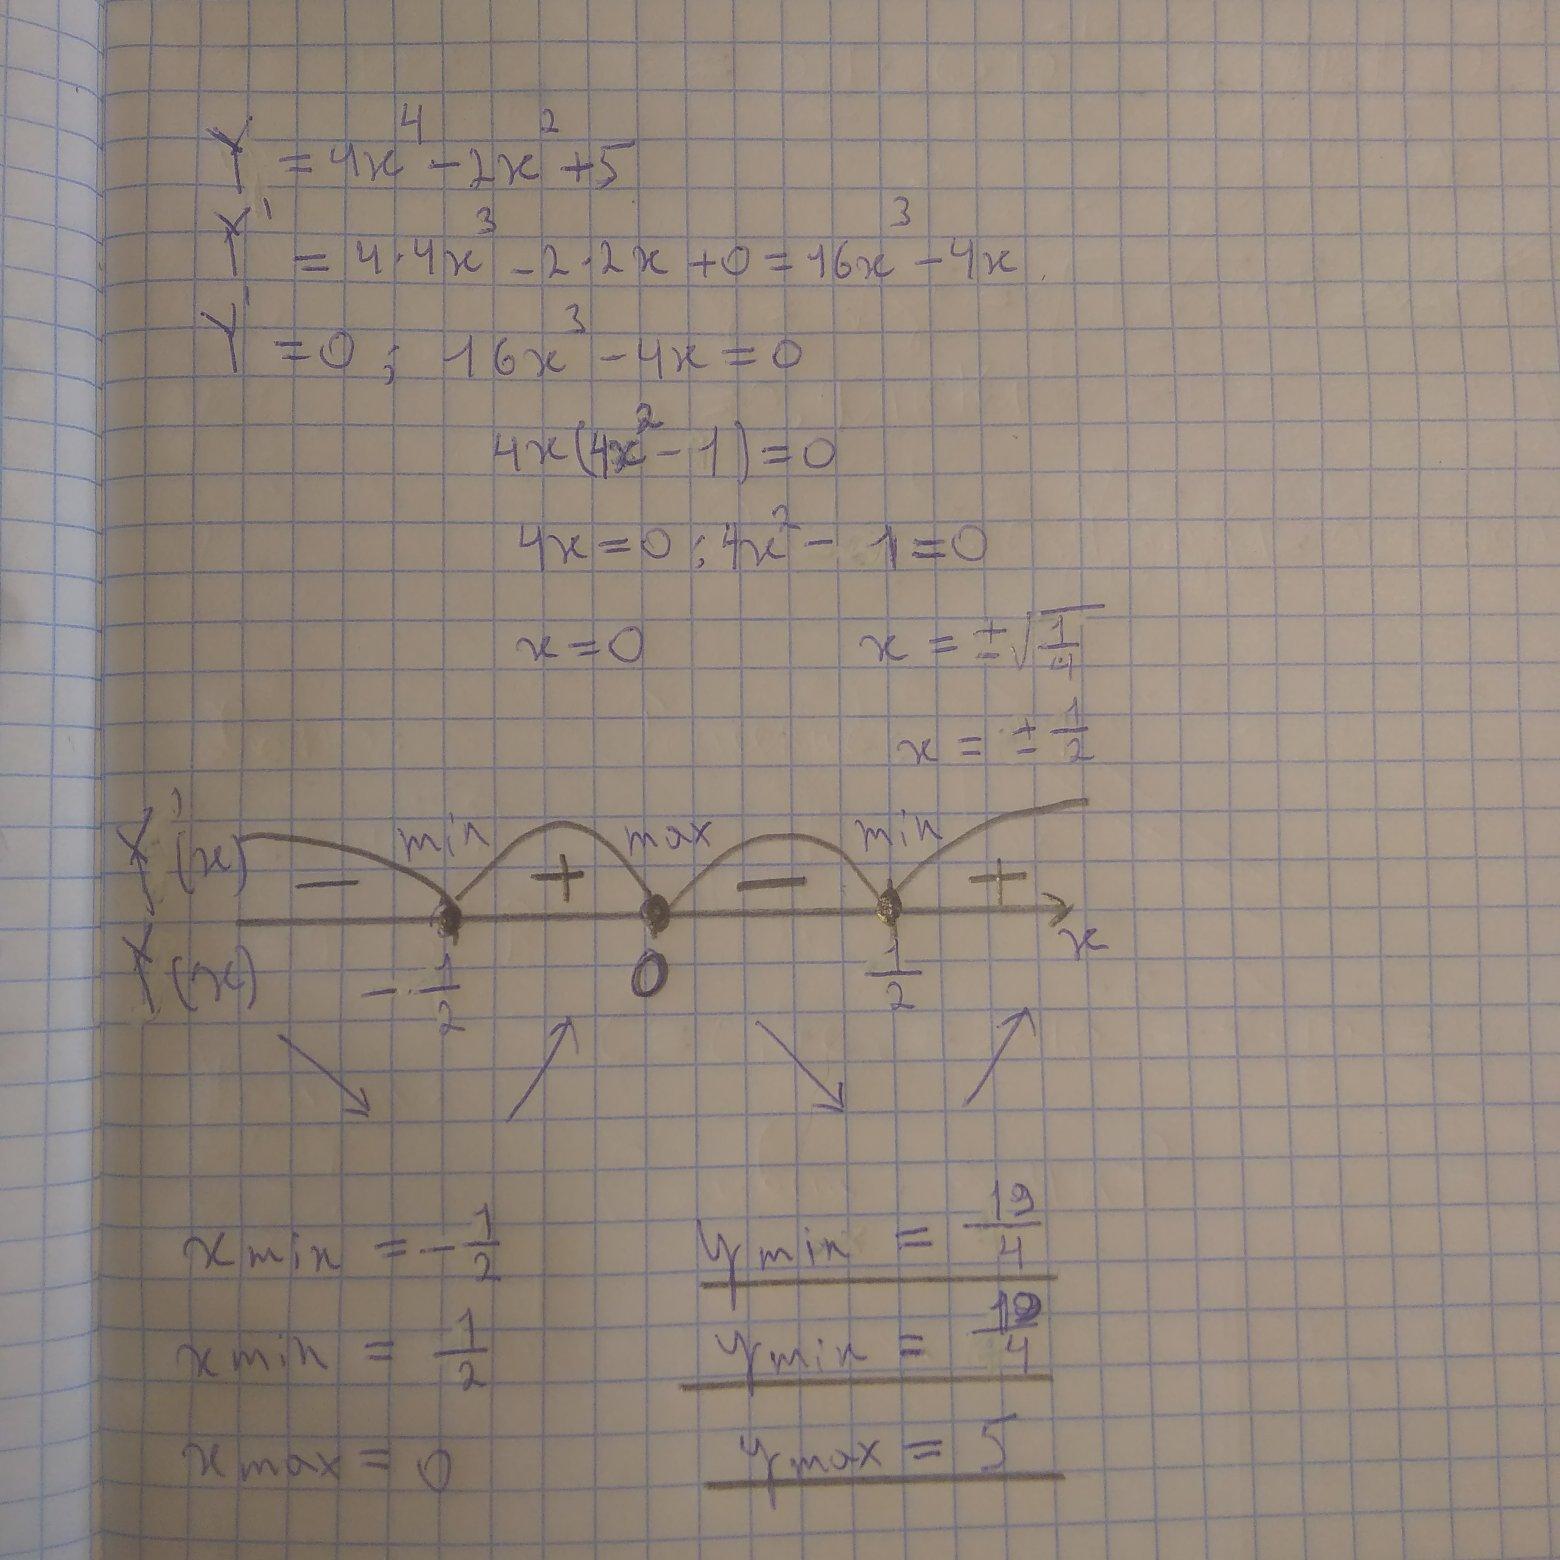 Y = 4x⁴ - 2x² + 5
Y' = 4·4x³ - 2·2x + 0 = 16x³ - 4x
Y' = 0; 16x³ - 4x = 0
4x(4x² - 1) = 0
4x = 0; 4x² - 1 = 0
x = 0 x = ±√(1/4)
x = ±1/2
Y'(x) min max min
- + - +
Y(x) -1/2 0 1/2 x
x min = -1/2 y min = 19/4
x min = 1/2 y min = 19/4
x max = 0 y max = 5